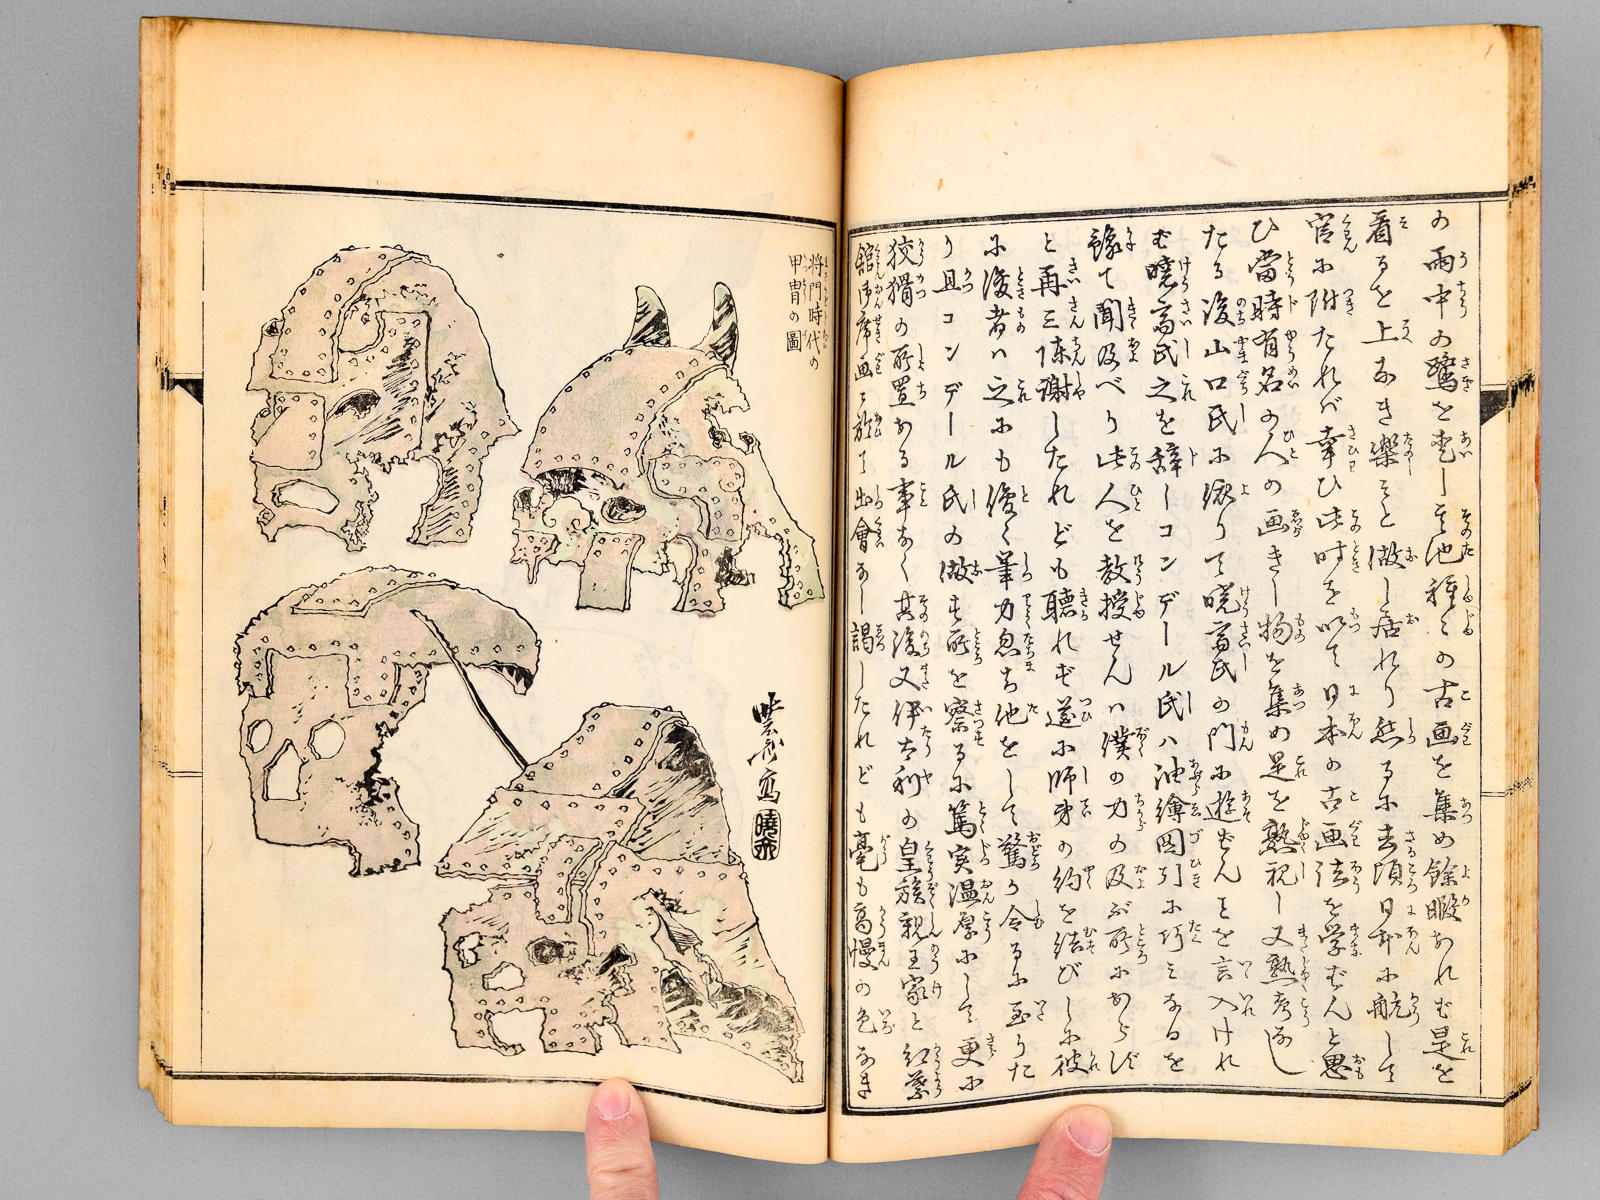 の雨中の鷺を画し其他種々の古画を集め餘暇あれむ是を
看るを上なき樂みと做し居れり然るに去頃日本に航して
官に附たれバ幸ひ此時を以て日本の古画法を学ばんと思
ひ當時有名の人の画きし物を集め是を熟視し又熟考なし
たる後山口氏に依りて暁斎氏の門に遊ばんことを言入けれ
む暁斎氏之を辞しコンデール氏ハ油繪図引に巧みなるを
豫て聞及べり此人を教授せんハ僕の力の及ぶ所にあらず
と再三陳謝したれども聴れず遂に師弟の約を結びしに彼
に後者ハ之にも後く筆力忽ち他をして驚か令るに至りた
り且コンデール氏の做す所を察るに篤実温厚にして更に
狡猾の所置ある事なく其後又伊太利の皇族親王家と紅葉
館御席画に於て出會なし謁したれども毫も高慢の色なき
将門時代の
甲冑の圖
暁斎寫
曉斎